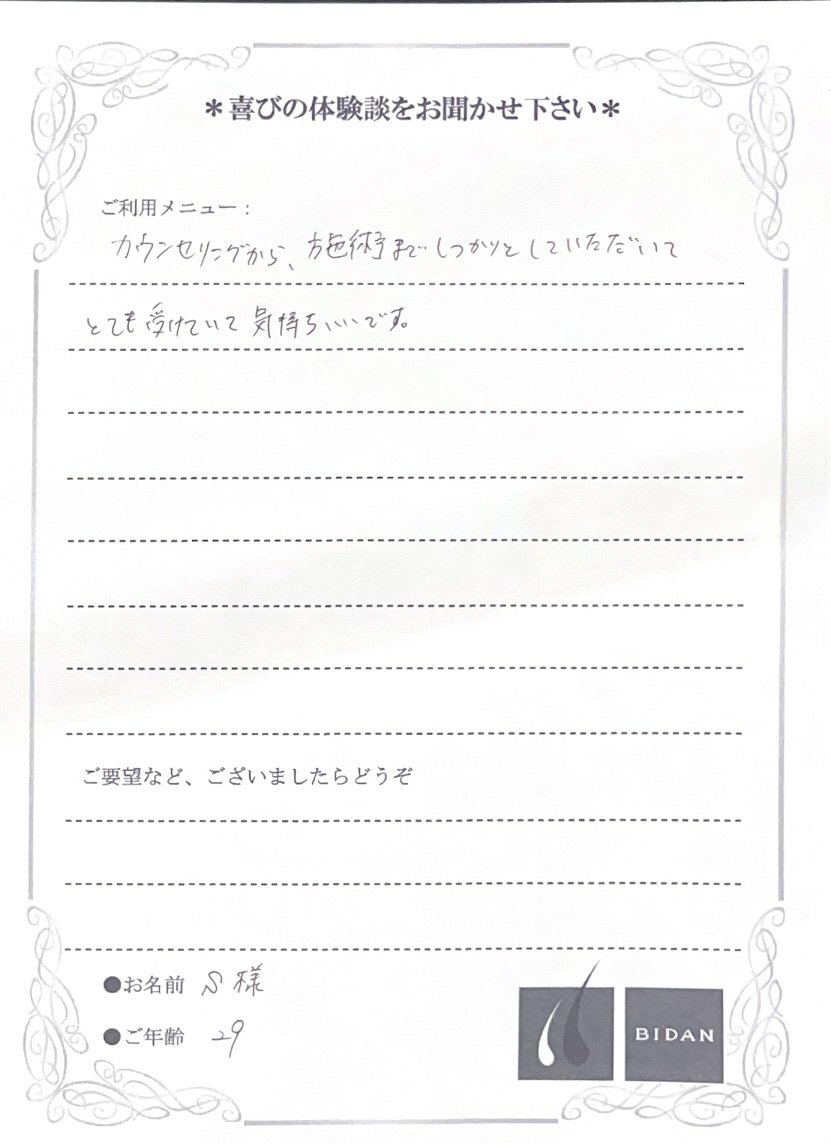 ＊喜びの体験談をお聞かせ下さい＊
ご利用メニュー：
カウンセリングから、施術までしっかりとしていただいて
とても受けていて気持ちいいです。
ご要望など、ございましたらどうぞ
●お名前 S様
●ご年齢 29
BIDAN